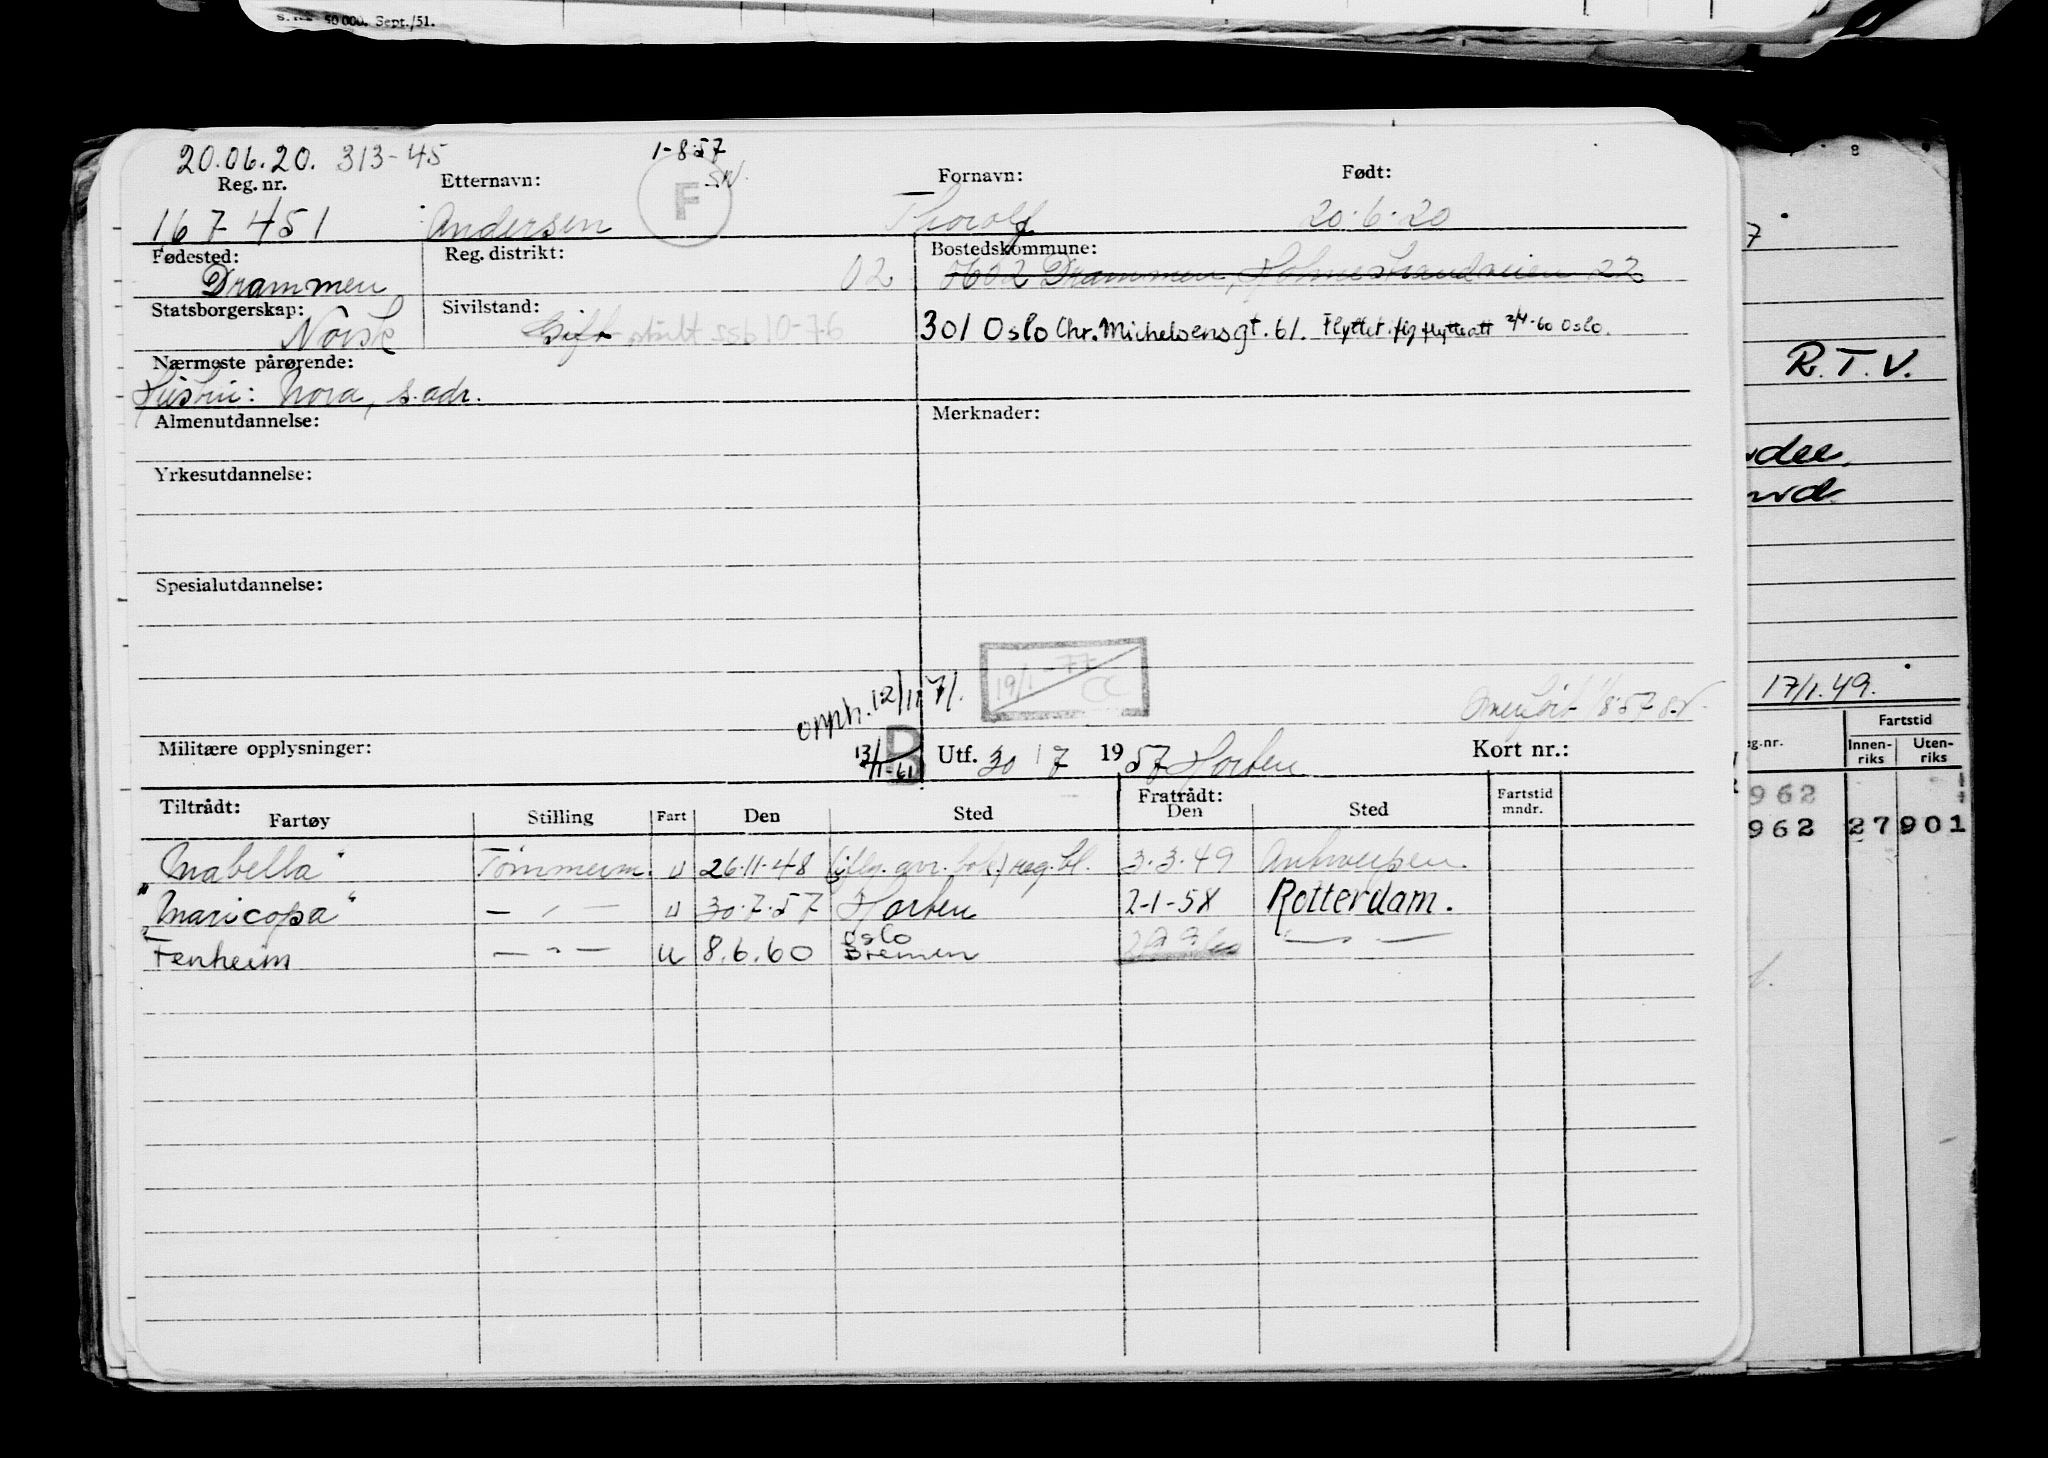 50 000. Sept./51.
20.06.20. 313-45
1-8-57
SN.
Reg. nr.
Etternavn:
F
Fornavn:
Født:
167 451
Andersen
Thorolf
20.6.20
Fødested:
Reg. distrikt:
Bostedskommune:
Drammen
02
0602 Drammen, Holmestrandveien 22
Statsborgerskap:
Sivilstand:
Norsk
Gift skilt ssb 10-76
301 Oslo Chr. Michelsensgt. 61. Flyttet iflg flytteatt 2/4-60 Oslo.
Nærmeste pårørende:
Hustru: Nora, s. adr.
Almenutdannelse:
Merknader:
Yrkesutdannelse:
Spesialutdannelse:
19/1-77
CC
opph. 12/11 71.
1/8 57 SN.
Militære opplysninger:
13/1-61
B
Utf. 30 / 7 1957 Horten
Kort nr.:
Tiltrådt:
Fratrådt:
Fartøy
Stilling
Fart
Den
Sted
Den
Sted
Fartstid mndr.
"Mabella"
Tømmerm.
u
26.11.48
(iflg. avr. bok) reg. bl.
3.3.49
Antwerpen.
"Maricopa"
— " —
u
30.7.57
Horten
2-1-58
Rotterdam.
Fernheim
— " —
u
8.6.60
Oslo
Bremen
29.9.60
— " —
8
7
R. T. V.
17/1.49.
Fartstid
eg.nr.
Innen-
riks
Uten-
riks
962
962
27
901